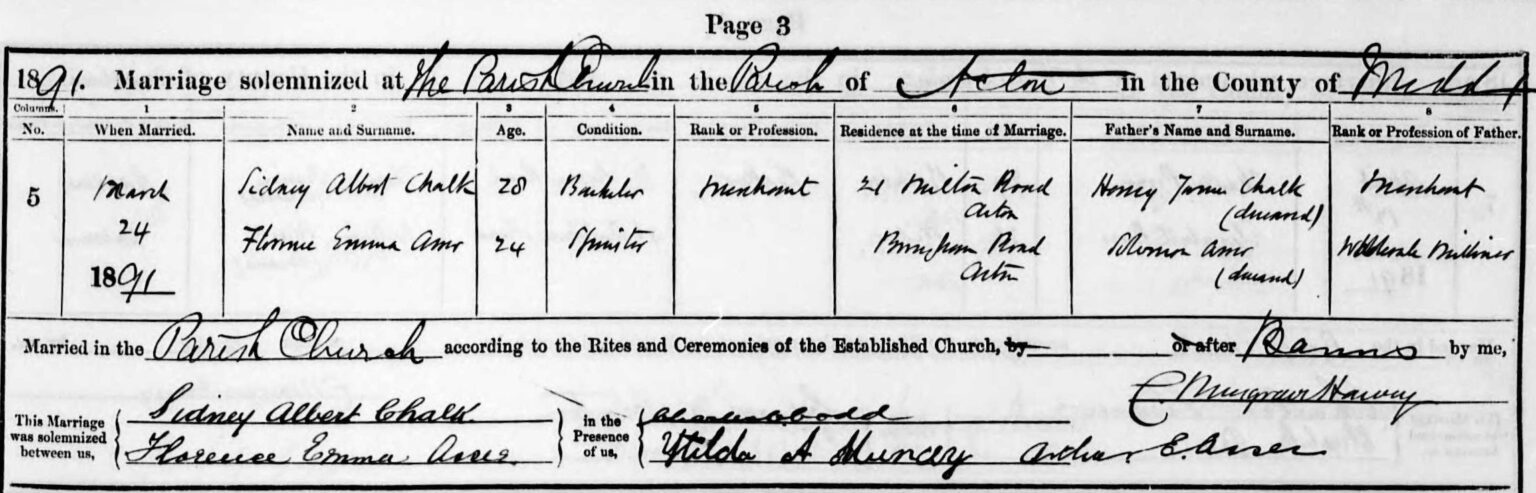 Page 3
1891. Marriage solemnized at The Parish Church in the Parish of Acton in the County of Middx
Columns. 1 2 3 4 5 6 7 8
No. When Married. Name and Surname. Age. Condition. Rank or Profession. Residence at the time of Marriage. Father's Name and Surname. Rank or Profession of Father.
5 March Sidney Albert Chalk 28 Bachelor Merchant 21 Milton Road Henry James Chalk Merchant
Acton (deceased)
24 Florence Emma Asser 24 Spinster Road Solomon Asser Wholesale Milliner
1891 Acton (deceased)
Married in the Parish Church according to the Rites and Ceremonies of the Established Church, by or after Banns by me,
C. Musgrave Harvey
This Marriage was solemnized between us, Sidney Albert Chalk. in the Presence of us, Dodd
Florence Emma Asser. Hilda A Muncey Arthur E. Asser